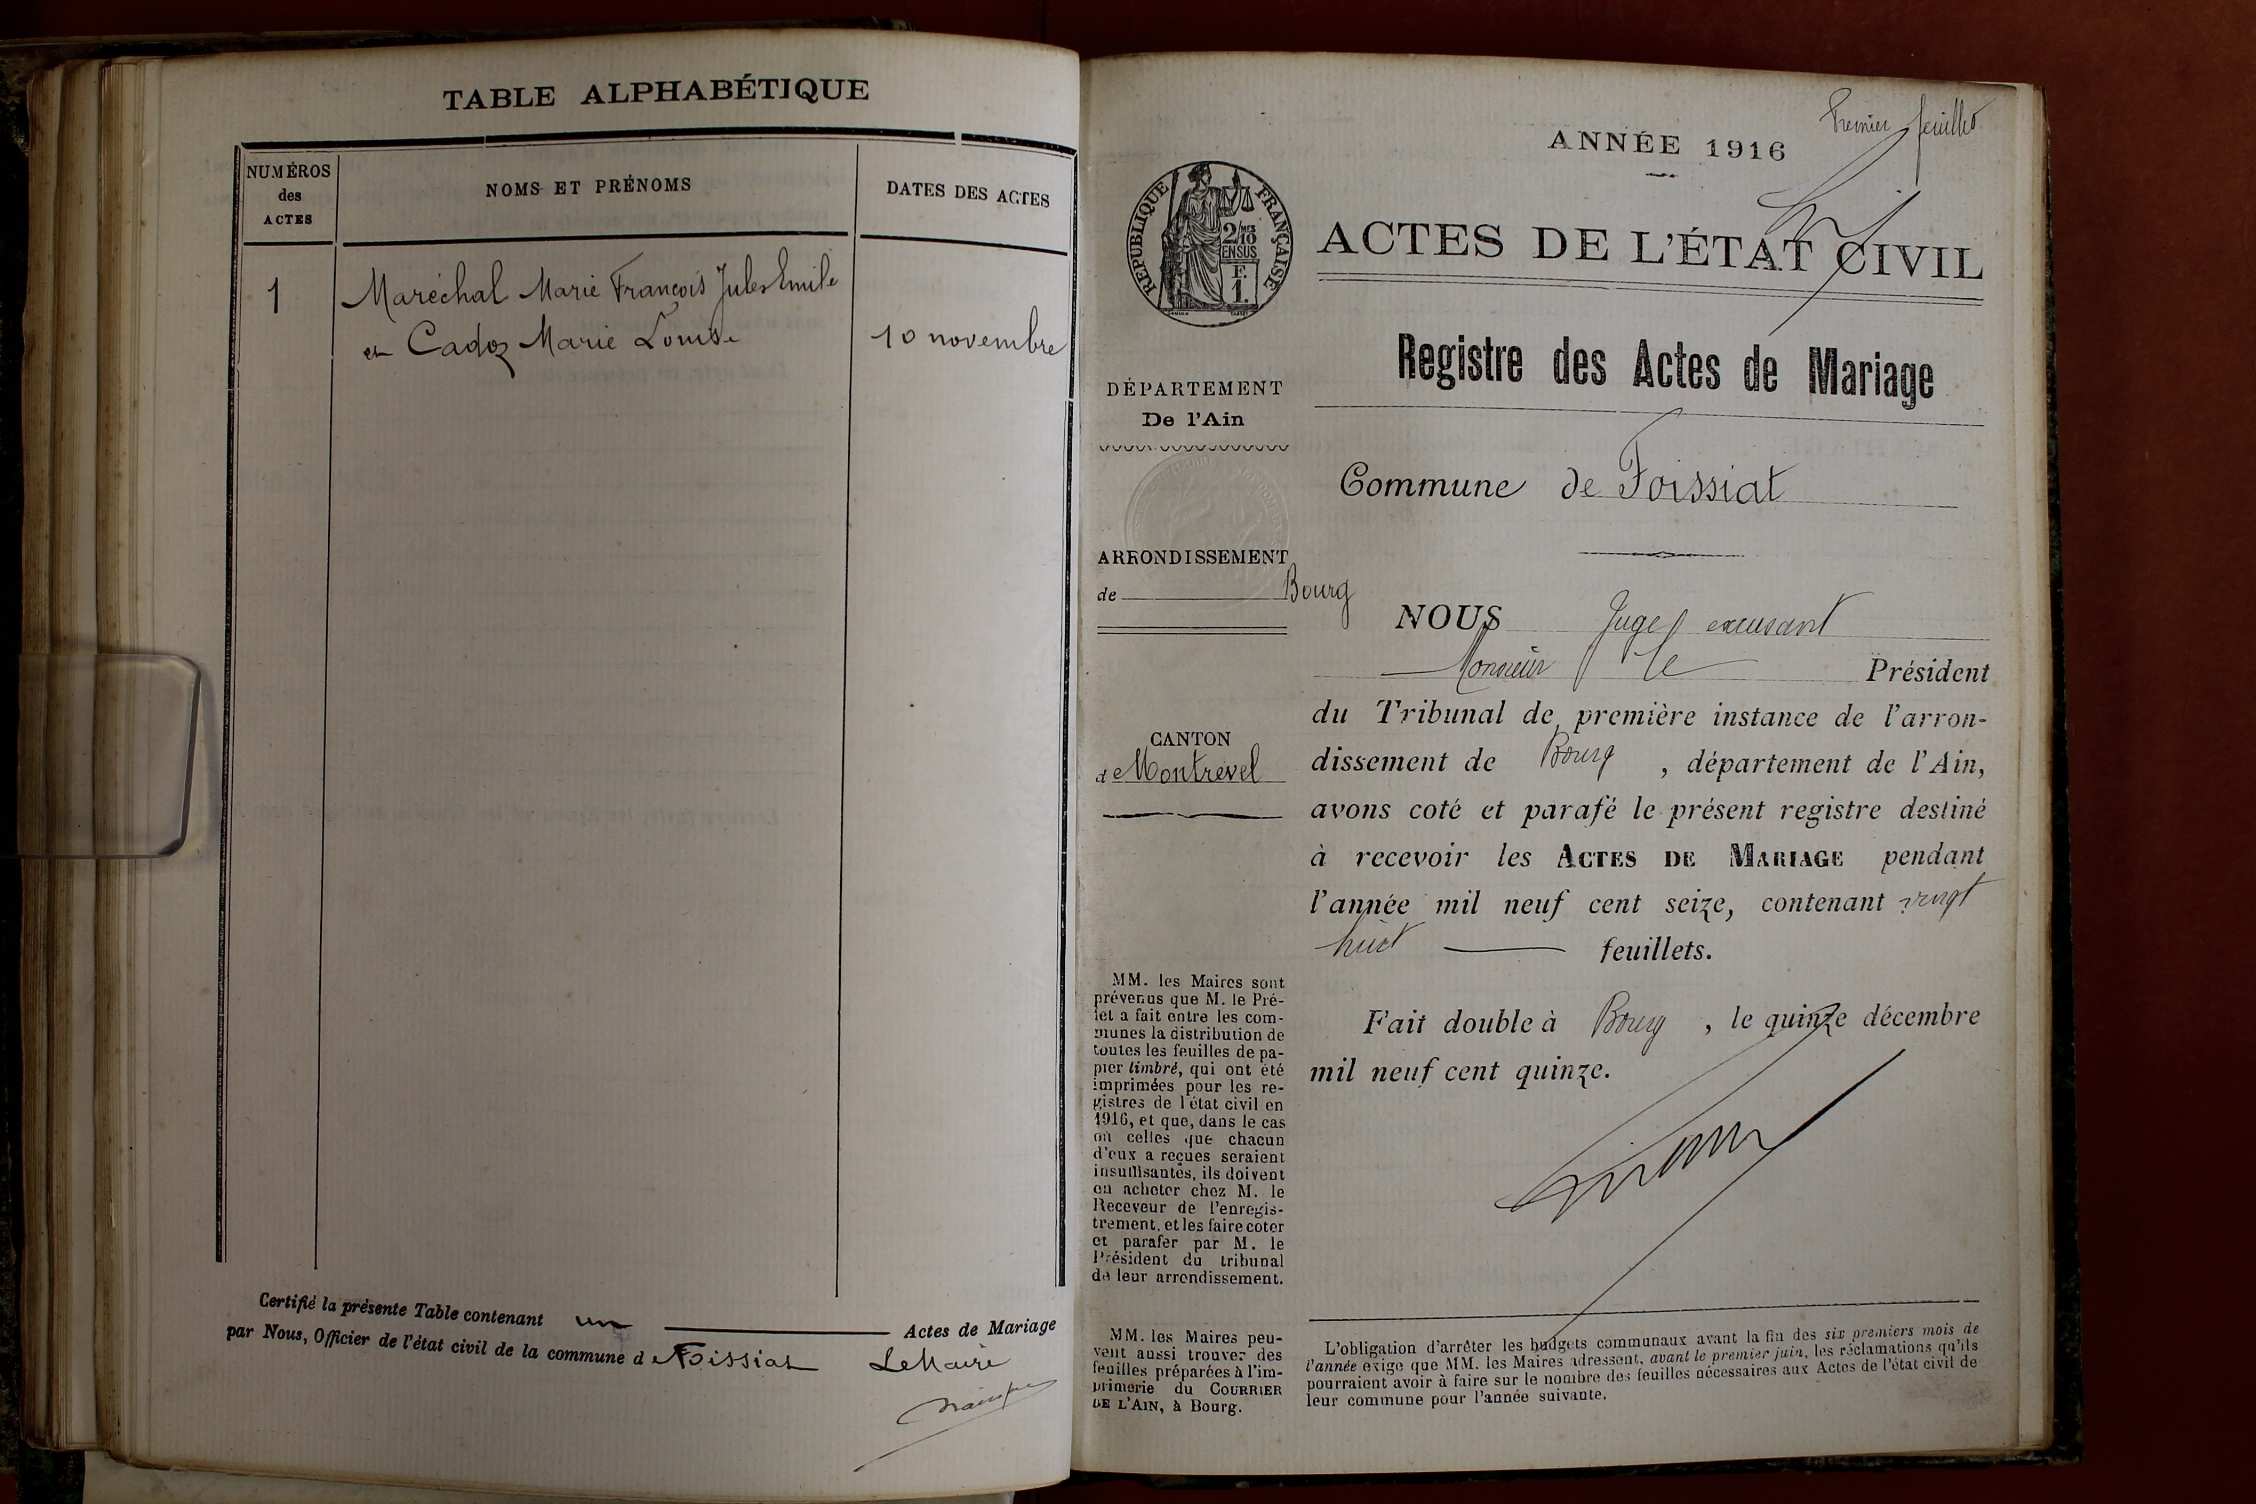 TABLE ALPHABÉTIQUE
NUMÉROS
des
ACTES
NOMS ET PRÉNOMS
DATES DES ACTES
1
Maréchal Marie François Jules Emile
et Cadoz Marie Louise
10 novembre
Certifié la présente Table contenant un Actes de Mariage
par Nous, Officier de l'état civil de la commune de Foissiat Le Maire
Premier feuillet
ANNÉE 1916
RÉPUBLIQUE FRANÇAISE
2/10
EN SUS
F.
1.
ACTES DE L'ÉTAT CIVIL
Registre des Actes de Mariage
DÉPARTEMENT
De l'Ain
Commune de Foissiat
ARRONDISSEMENT
de Bourg
CANTON
de Montrevel
NOUS Juge excusant
Monsieur le Président
du Tribunal de première instance de l'arron-
dissement de Bourg, département de l'Ain,
avons coté et parafé le présent registre destiné
à recevoir les ACTES DE MARIAGE pendant
l'année mil neuf cent seize, contenant vingt
huit feuillets.
Fait double à Bourg, le quinze décembre
mil neuf cent quinze.
MM. les Maires sont
prévenus que M. le Pré-
fet a fait entre les com-
munes la distribution de
toutes les feuilles de pa-
pier timbré, qui ont été
imprimées pour les re-
gistres de l'état civil en
1916, et que, dans le cas
où celles que chacun
d'eux a reçues seraient
insuffisantes, ils doivent
en acheter chez M. le
Receveur de l'enregis-
trement, et les faire coter
et parafer par M. le
Président du tribunal
de leur arrondissement.
MM. les Maires peu-
vent aussi trouver des
feuilles préparées à l'im-
primerie du COURRIER
DE L'AIN, à Bourg.
L'obligation d'arrêter les budgets communaux avant la fin des six premiers mois de
l'année exige que MM. les Maires adressent, avant le premier juin, les réclamations qu'ils
pourraient avoir à faire sur le nombre des feuilles nécessaires aux Actes de l'état civil de
leur commune pour l'année suivante.